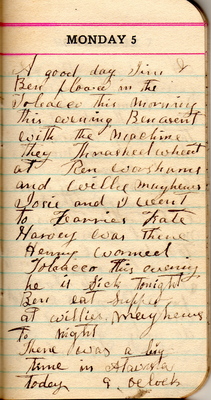 MONDAY 5
A good day Jim &
Ben plowed in the
Tobacco this morning
this evening Ben went
with the machine
they Thrashed wheat
at Ken Worshams
and Willie mayhews
Josie and I went
To Fannies Kate
Harvey was there
Henry wormed
Tobacco this evening
he is Sick tonight
Ben eat supper
at willies mayhews
To night
There was a big
time in
today 9 oclock